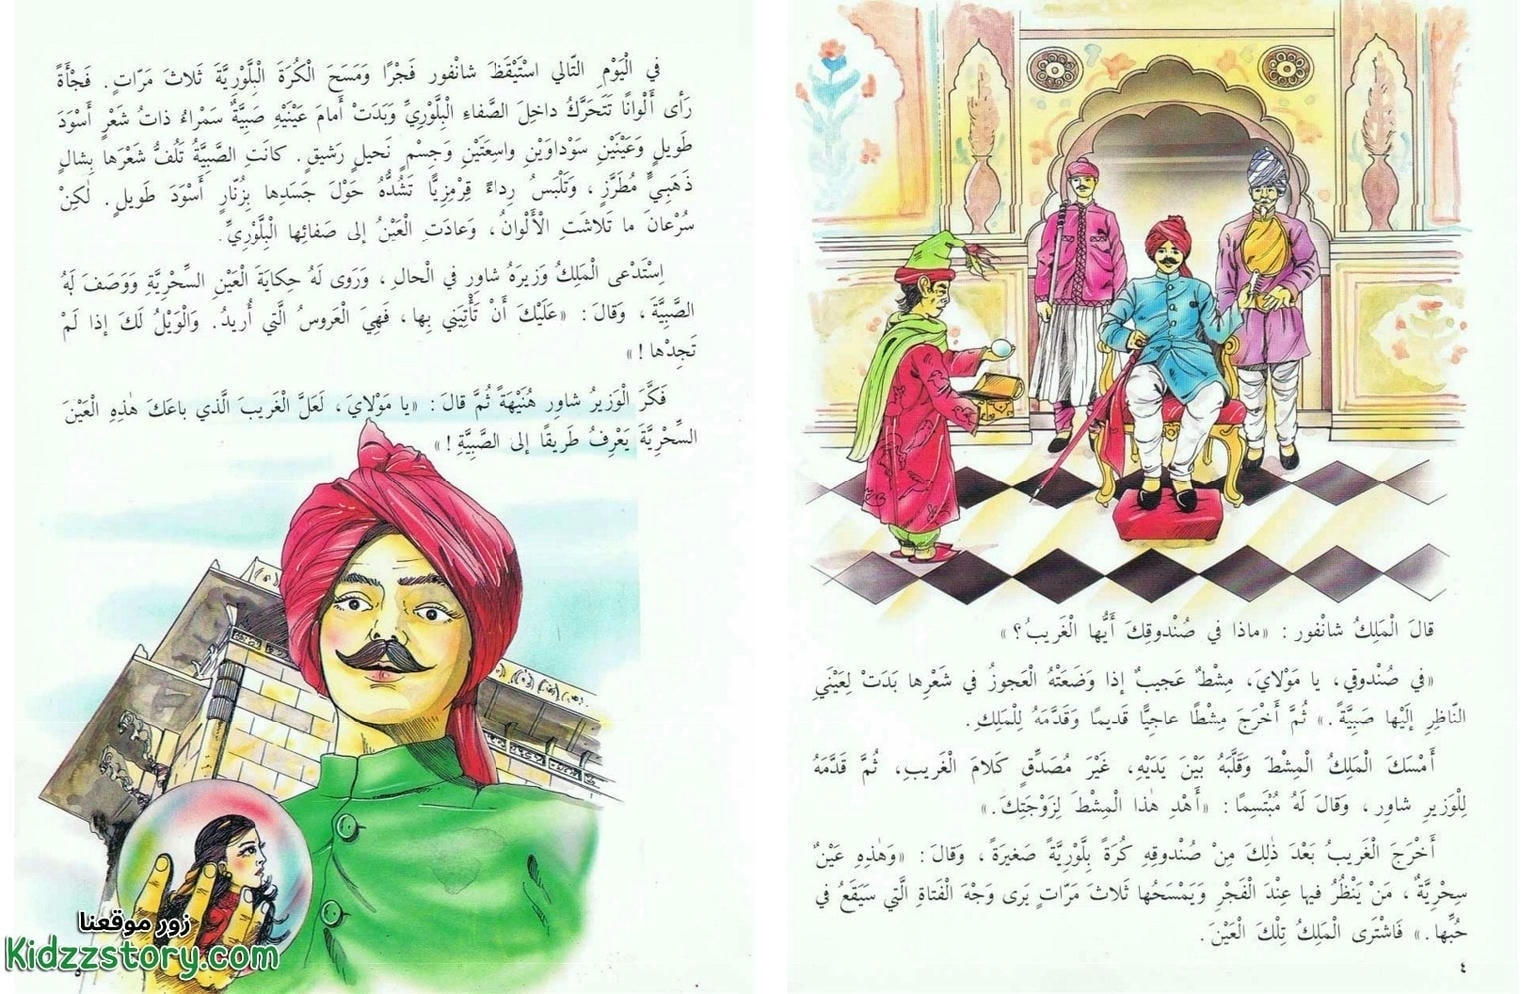 قالَ الْمَلِكُ شانْفور : «ماذا في صُنْدوقِكَ أَيُّها الْغَريبُ؟ »
«في صُنْدوقي، يا مَوْلايَ، مِشْطٌ عَجيبٌ إذا وَضَعَتْهُ الْعَجوزُ في شَعْرِها بَدَتْ لِعَيْنَيِ
النّاظِرِ إلَيْها صَبِيَّةً . » ثُمَّ أَخْرَجَ مِشْطًا عاجِيًّا قَديمًا وَقَدَّمَهُ لِلْمَلِكِ .
أَمْسَكَ الْمَلِكُ الْمِشْطَ وَقَلَّبَهُ بَيْنَ يَدَيْهِ، غَيْرَ مُصَدِّقٍ كَلامَ الْغَريبِ، ثُمَّ قَدَّمَهُ
لِلْوَزيرِ شاوِر ، وَقالَ لَهُ مُبْتَسِمًا : «أَهْدِ هٰذا الْمِشْطَ لِزَوْجَتِكَ . »
أَخْرَجَ الْغَريبُ بَعْدَ ذٰلِكَ مِنْ صُنْدوقِهِ كُرَةً بِلَّوْرِيَّةً صَغيرَةً ، وَقالَ : «وَهٰذِهِ عَيْنٌ
سِحْرِيَّةٌ ، مَنْ يَنْظُرُ فيها عِنْدَ الْفَجْرِ وَيَمْسَحُها ثَلاثَ مَرّاتٍ يَرى وَجْهَ الْفَتاةِ الَّتي سَيَقَعُ في
حُبِّها . » فَاشْتَرى الْمَلِكُ تِلْكَ الْعَيْنَ .
٤
في الْيَوْمِ التّالي اسْتَيْقَظَ شانْفور فَجْرًا وَمَسَحَ الْكُرَةَ الْبِلَّوْرِيَّةَ ثَلاثَ مَرّاتٍ . فَجْأَةً
رَأى أَلْوانًا تَتَحَرَّكُ داخِلَ الصَّفاءِ الْبِلَّوْرِيِّ وَبَدَتْ أَمامَ عَيْنَيْهِ صَبِيَّةٌ سَمْراءُ ذاتُ شَعْرٍ أَسْوَدَ
طَويلٍ وَعَيْنَيْنِ سَوْداوَيْنِ واسِعَتَيْنِ وَجِسْمٍ نَحيلٍ رَشيقٍ . كانَتِ الصَّبِيَّةُ تَلُفُّ شَعْرَها بِشالٍ
ذَهَبِيٍّ مُطَرَّزٍ ، وَتَلْبَسُ رِداءً قِرْمِزِيًّا تَشُدُّهُ حَوْلَ جَسَدِها بِزُنّارٍ أَسْوَدَ طَويلٍ . لٰكِنْ
سُرْعانَ ما تَلاشَتِ الْأَلْوانُ ، وَعادَتِ الْعَيْنُ إلى صَفائِها الْبِلَّوْرِيِّ .
اِسْتَدْعى الْمَلِكُ وَزيرَهُ شاوِر في الْحالِ ، وَرَوى لَهُ حِكايَةَ الْعَيْنِ السِّحْرِيَّةِ وَوَصَفَ لَهُ
الصَّبِيَّةَ ، وَقالَ : «عَلَيْكَ أَنْ تَأْتِيَني بِها ، فَهِيَ الْعَروسُ الَّتي أُريدُ. وَالْوَيْلُ لَكَ إذا لَمْ
تَجِدْها ! »
فَكَّرَ الْوَزيرُ شاوِر هُنَيْهَةً ثُمَّ قالَ : «يا مَوْلايَ ، لَعَلَّ الْغَريبَ الَّذي باعَكَ هٰذِهِ الْعَيْنَ
السِّحْرِيَّةَ يَعْرِفُ طَريقًا إلى الصَّبِيَّةِ ! »
زور موقعنا
Kidzzstory.com